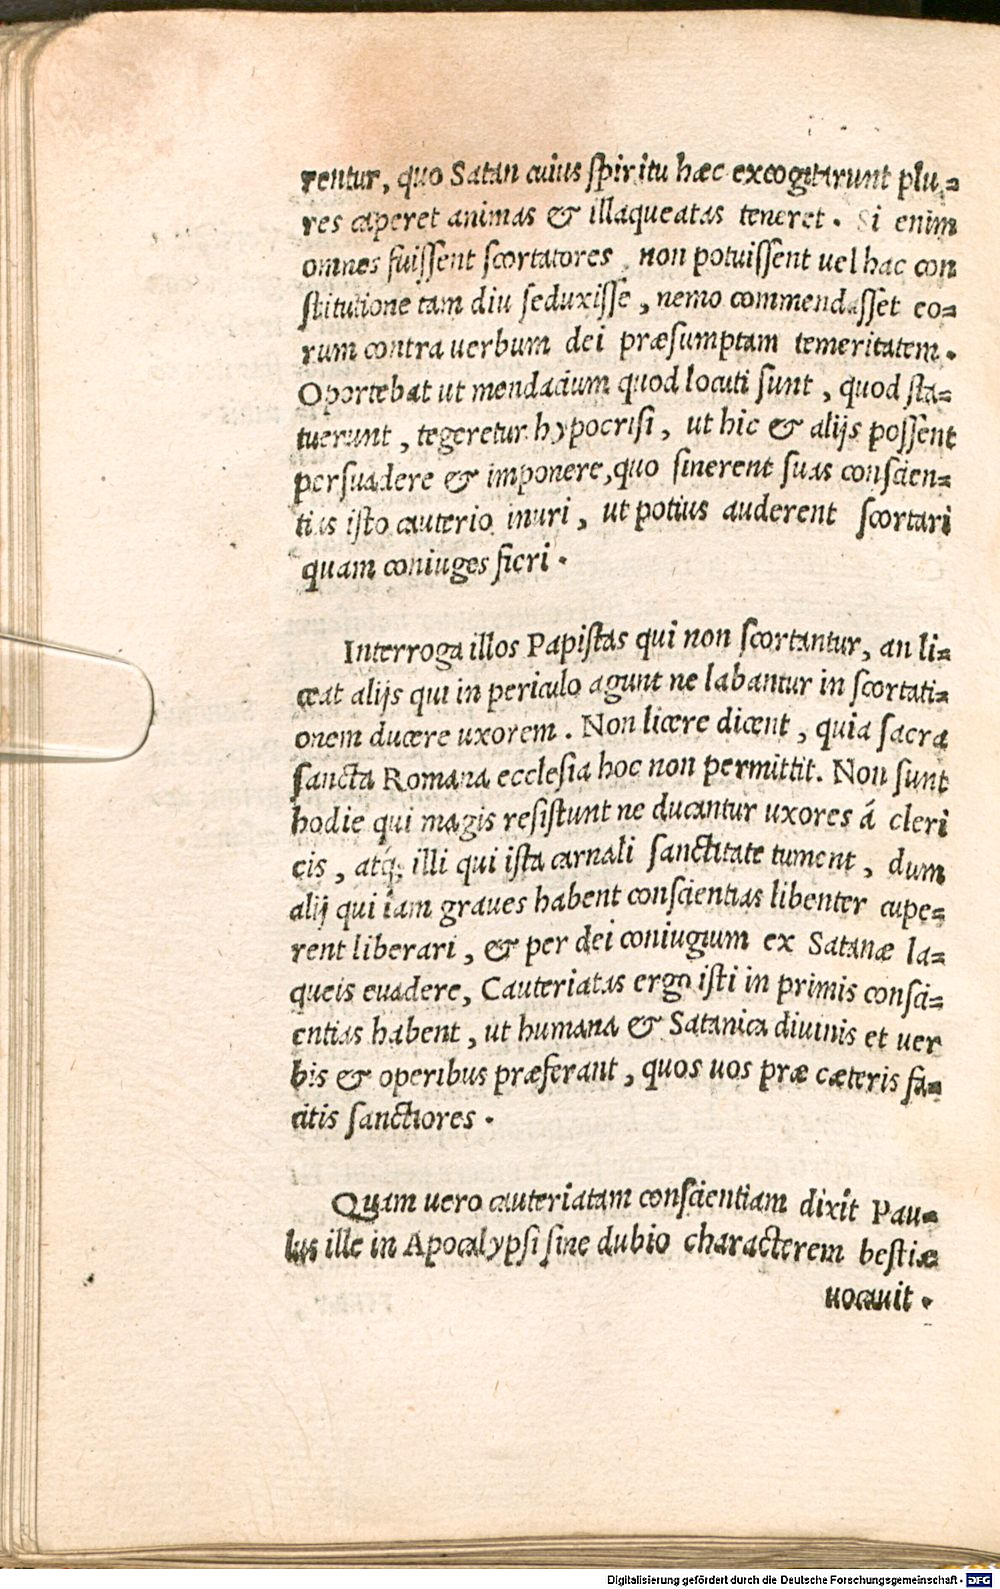 rentur, quo Satan cuius ſpiritu hæc excogitarunt plu⸗
res caperet animas & illaqueatas teneret. Si enim
omnes fuiſſent ſcortatores, non potuiſſent uel hac con
ſtitutione tam diu ſeduxiſſe, nemo commendaſſet eo⸗
rum contra uerbum dei præſumptam temeritatem.
Oportebat ut mendacium quod locuti ſunt, quod ſta⸗
tuerunt, tegeretur hypocriſi, ut hic & alijs poſſent
perſuadere & imponere, quo ſinerent ſuas conſcien⸗
tias iſto cauterio inuri, ut potius auderent ſcortari
quam coniuges fieri.
Interroga illos Papiſtas qui non ſcortantur, an li⸗
ceat alijs qui in periculo agunt ne labantur in ſcortati⸗
onem ducere uxorem. Non licere dicent, quia ſacra
ſancta Romana eccleſia hoc non permittit. Non ſunt
hodie qui magis reſiſtunt ne ducantur uxores á cleri
cis, atq́; illi qui iſta carnali ſanctitate tument, dum
alij qui iam graues habent conſcientias libenter cupe⸗
rent liberari, & per dei coniugium ex Satanæ la⸗
queis euadere, Cauteriatas ergo iſti in primis conſci⸗
entias habent, ut humana & Satanica diuinis et uer
bis & operibus præferant, quos uos præ cæteris fa⸗
citis ſanctiores.
Quam uero cauteriatam conſcientiam dixit Pau⸗
lus ille in Apocalypſi ſine dubio characterem beſtiæ
uocauit.
Digitalisierung gefördert durch die Deutsche Forschungsgemeinschaft - DFG